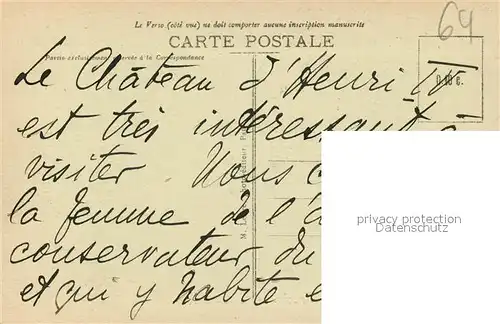 64
Le Verso (côté vue) ne doit comporter aucune inscription manuscrite
CARTE POSTALE
à la Correspondance
0,40 c.
Le Château d'Henri IV
est très intéressant à
visiter Nous
la femme de l'a
conservateur du
et qui y habite e
privacy protection
Datenschutz